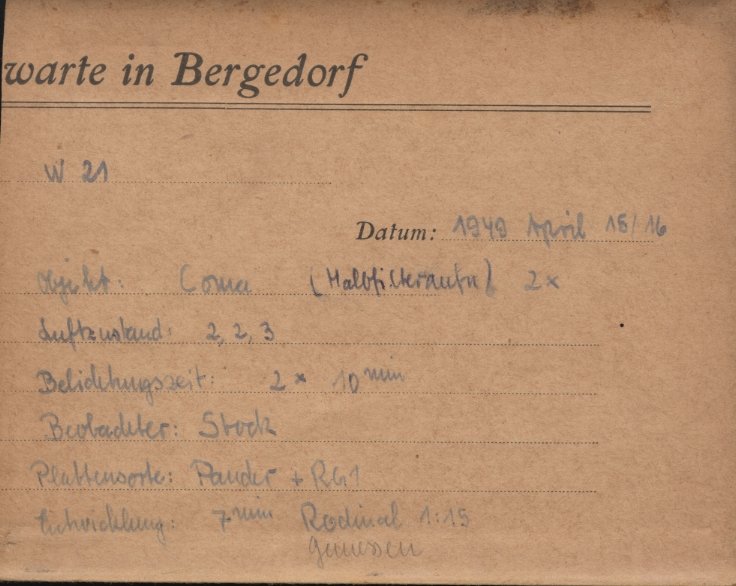 warte in Bergedorf
W 21
Datum: 1949 April 15/16
Objekt: Coma (Halbfilteraufn) 2x
Luftzustand: 2, 2, 3
Belichtungszeit: 2 x 10 min
Beobachter: Stock
Plattensorte: + RG1
Entwicklung: 7 min Rodinal 1:15
gemessen